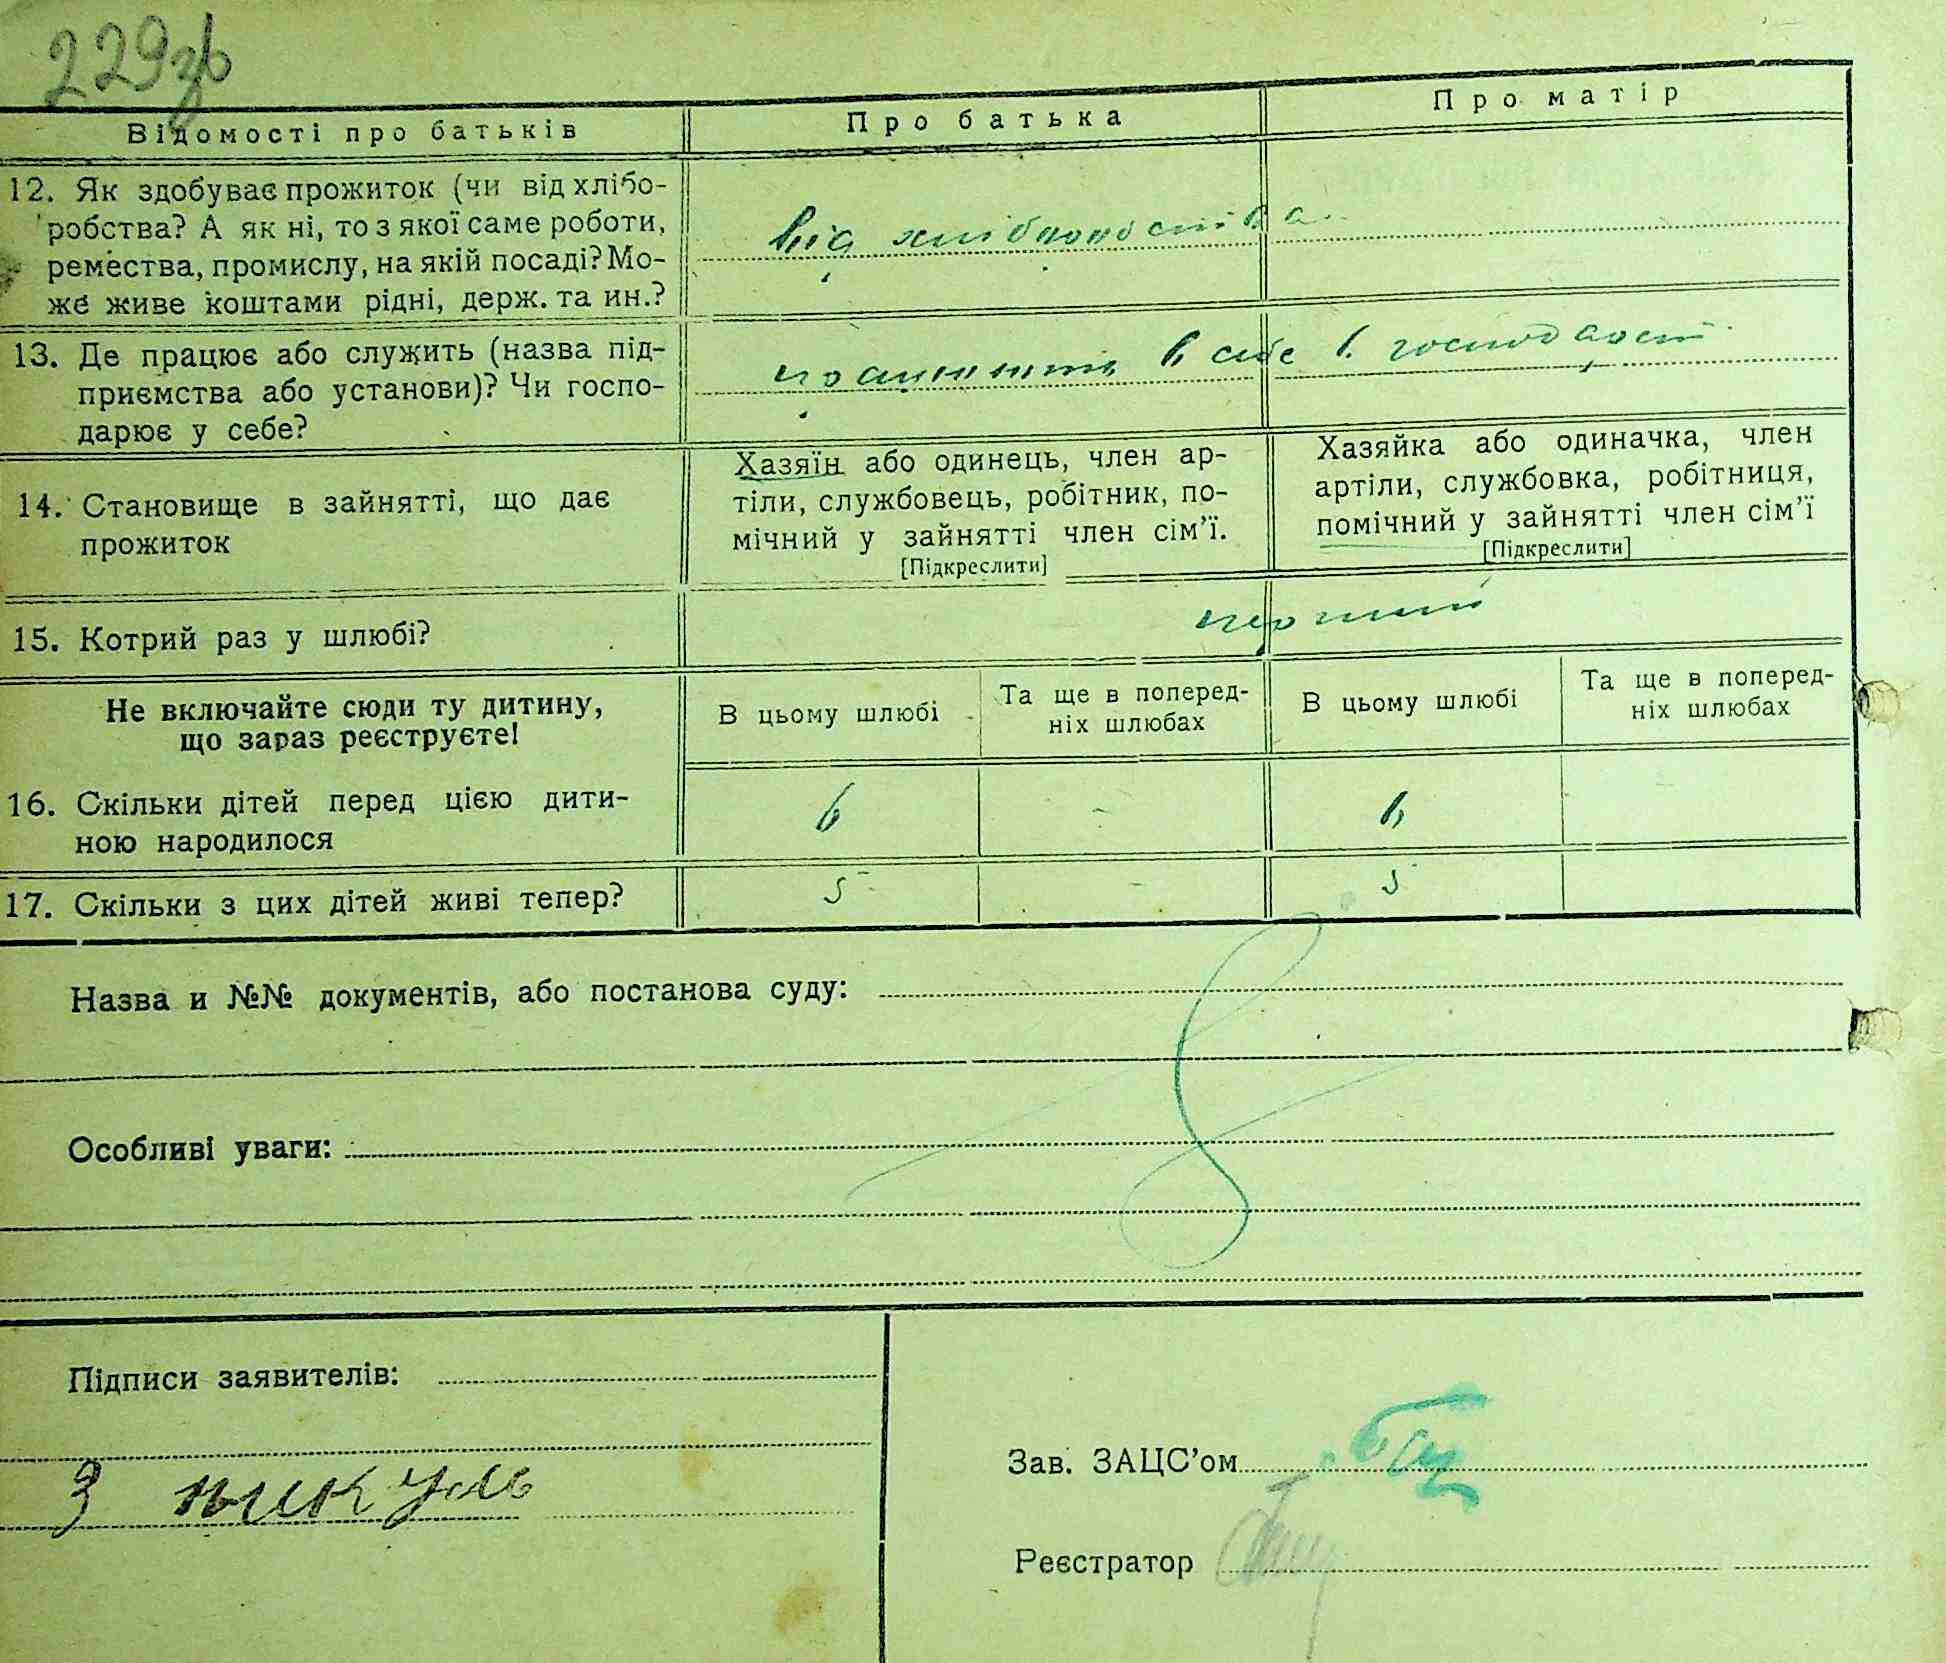 229зв
Відомості про батьків
Про батька
Про матір
12. Як здобуває прожиток (чи від хлібо-
робства? А як ні, то з якої саме роботи,
ремества, промислу, на якій посаді? Мо-
же живе коштами рідні, держ. та ин.?
від хліборобства
13. Де працює або служить (назва під-
приємства або установи)? Чи госпо-
дарює у себе?
в себе в господарст
14. Становище в зайнятті, що дає
прожиток
Хазяїн або одинець, член ар-
тіли, службовець, робітник, по-
мічний у зайнятті член сім'ї.
[Підкреслити]
Хазяйка або одиначка, член
артіли, службовка, робітниця,
помічний у зайнятті член сім'ї
[Підкреслити]
15. Котрий раз у шлюбі?
перший
Не включайте сюди ту дитину,
що зараз реєструєте!
В цьому шлюбі
Та ще в поперед-
ніх шлюбах
В цьому шлюбі
Та ще в поперед-
ніх шлюбах
16. Скільки дітей перед цією дити-
ною народилося
6 - 6 -
17. Скільки з цих дітей живі тепер?
5 - 5
Назва и №№ документів, або постанова суду:
Особливі уваги:
Підписи заявителів:
З пикуль
Зав. ЗАЦС'ом
Реєстратор